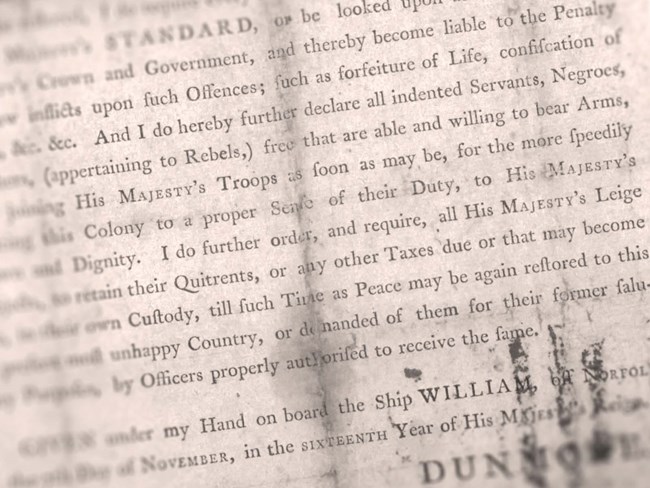 STANDARD, or be looked upon
Crown and Government, and thereby become liable to the Penalty
inflicts upon ſuch Offences; ſuch as forfeiture of Life, confiſcation of
&c. &c. And I do hereby further declare all indented Servants, Negroes,
(appertaining to Rebels,) free that are able and willing to bear Arms,
joining His MAJESTY's Troops as ſoon as may be, for the more ſpeedily
this Colony to a proper Senſe of their Duty, to His MAJESTY's
and Dignity. I do further order, and require, all His MAJESTY's Leige
to retain their Quitrents, or any other Taxes due or that may become
own Cuſtody, till ſuch Time as Peace may be again reſtored to this
moſt unhappy Country, or demanded of them for their former ſalu-
by Officers properly authoriſed to receive the ſame.
GIVEN under my Hand on board the Ship WILLIAM, off NORFOL
Day of NOVEMBER, in the SIXTEENTH Year of His MAJESTY's Reign.
DUNMO